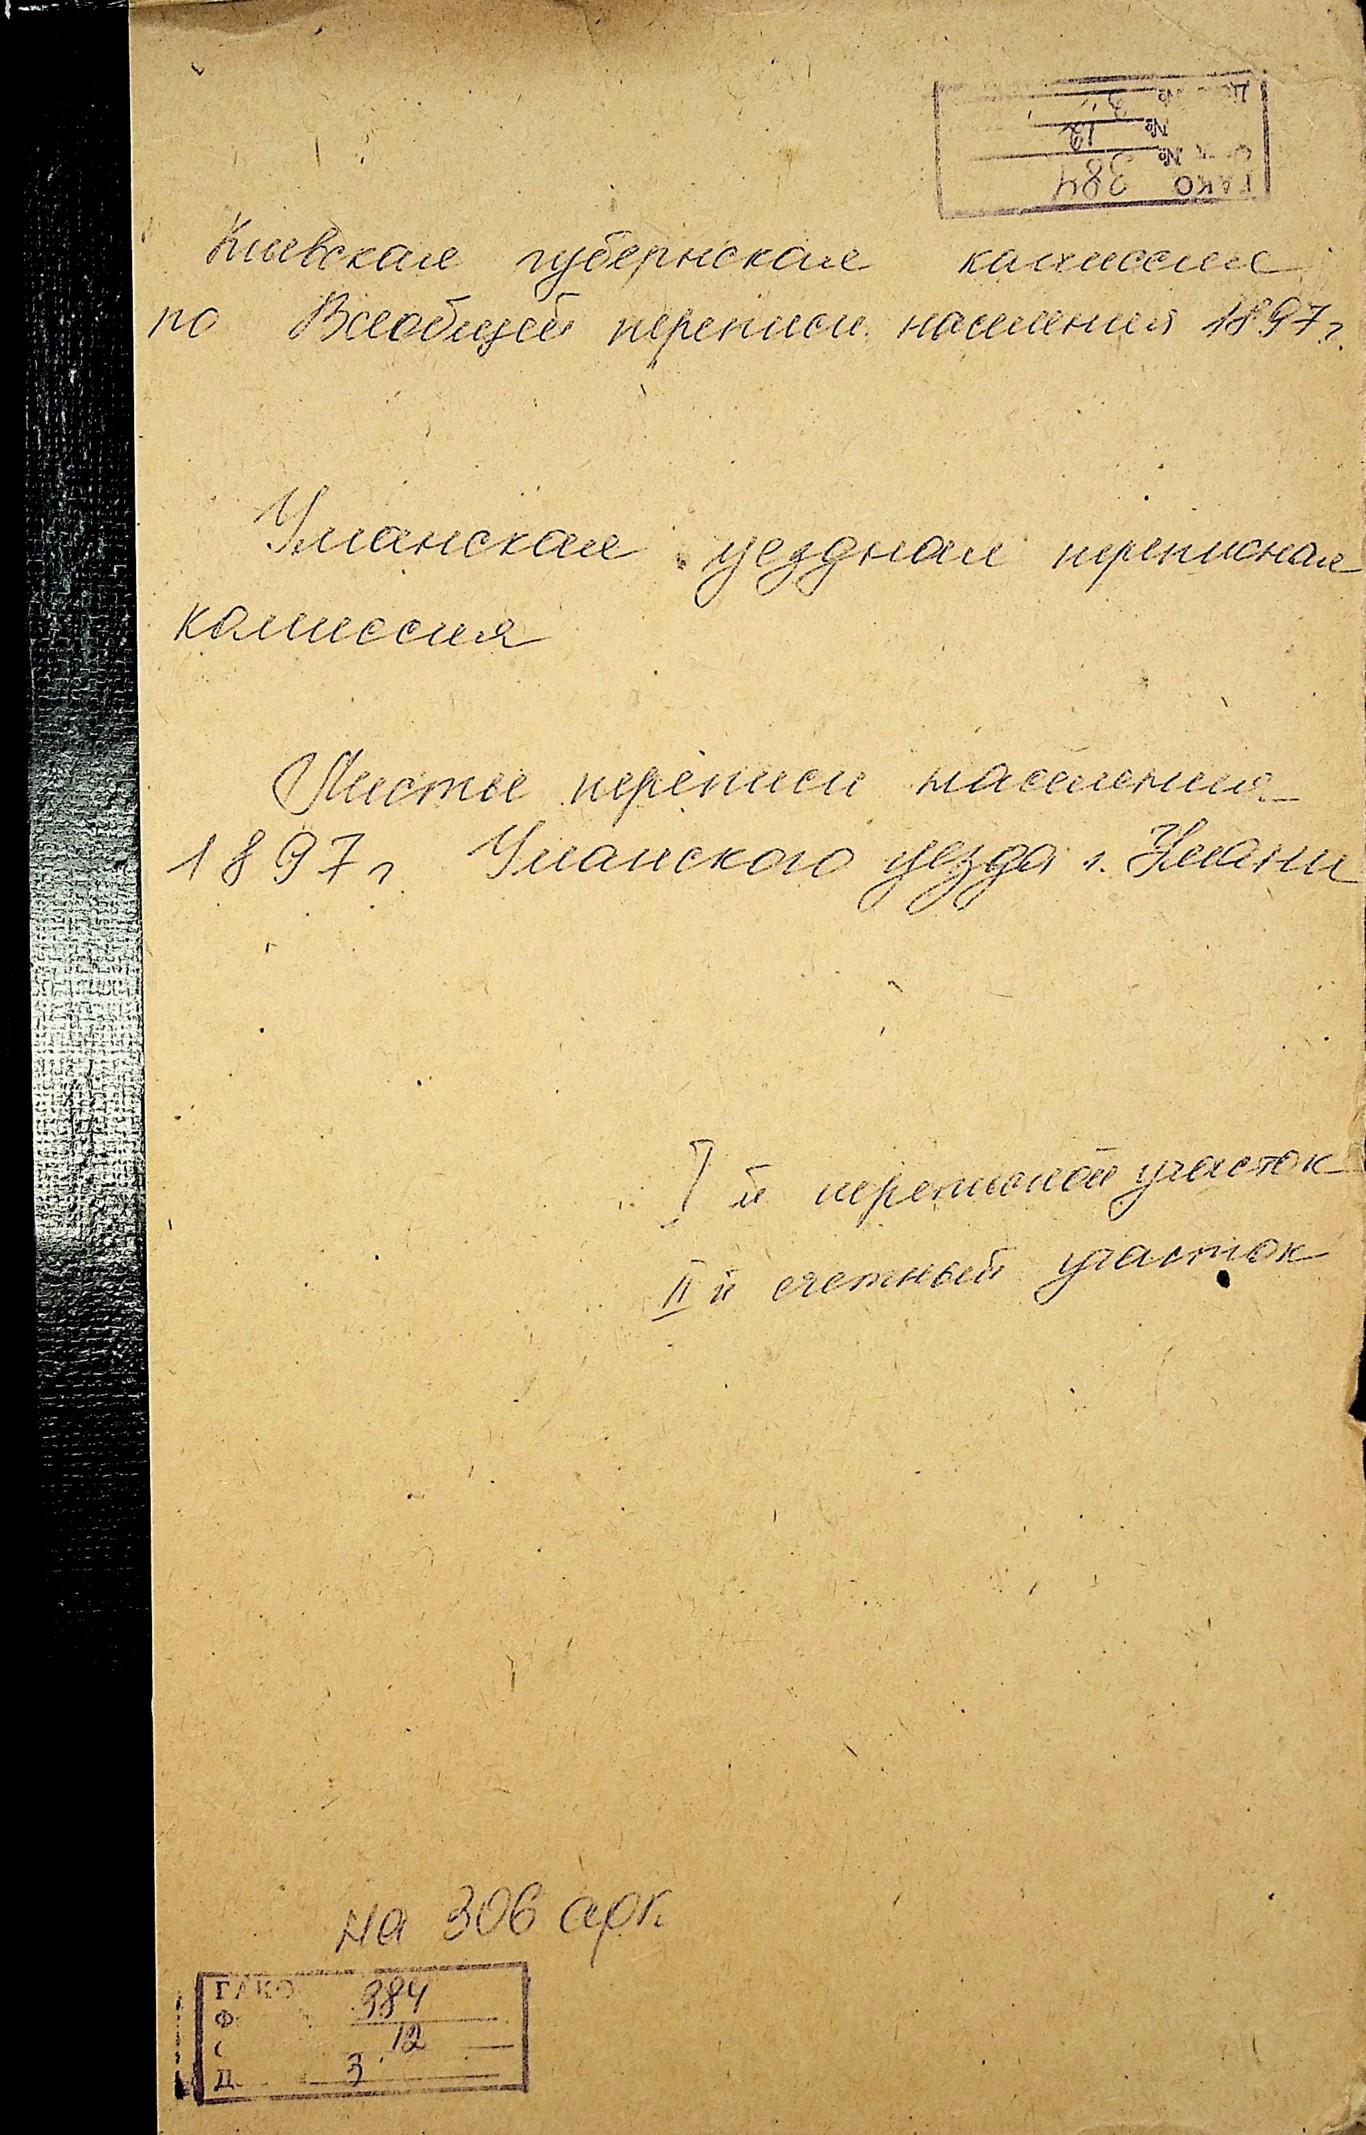 ГАКО 384
№ 12
№ 3
Киевская губернская комиссия
по Всеобщей переписи населения 1897 г.
Уманская уездная переписная
комиссия
Листы переписи населения
1897 г Уманского уезда г. Умани
I й переписной участок
II й счетный участок
на 306 арк.
ГАКО 384
Ф
12
Д 3